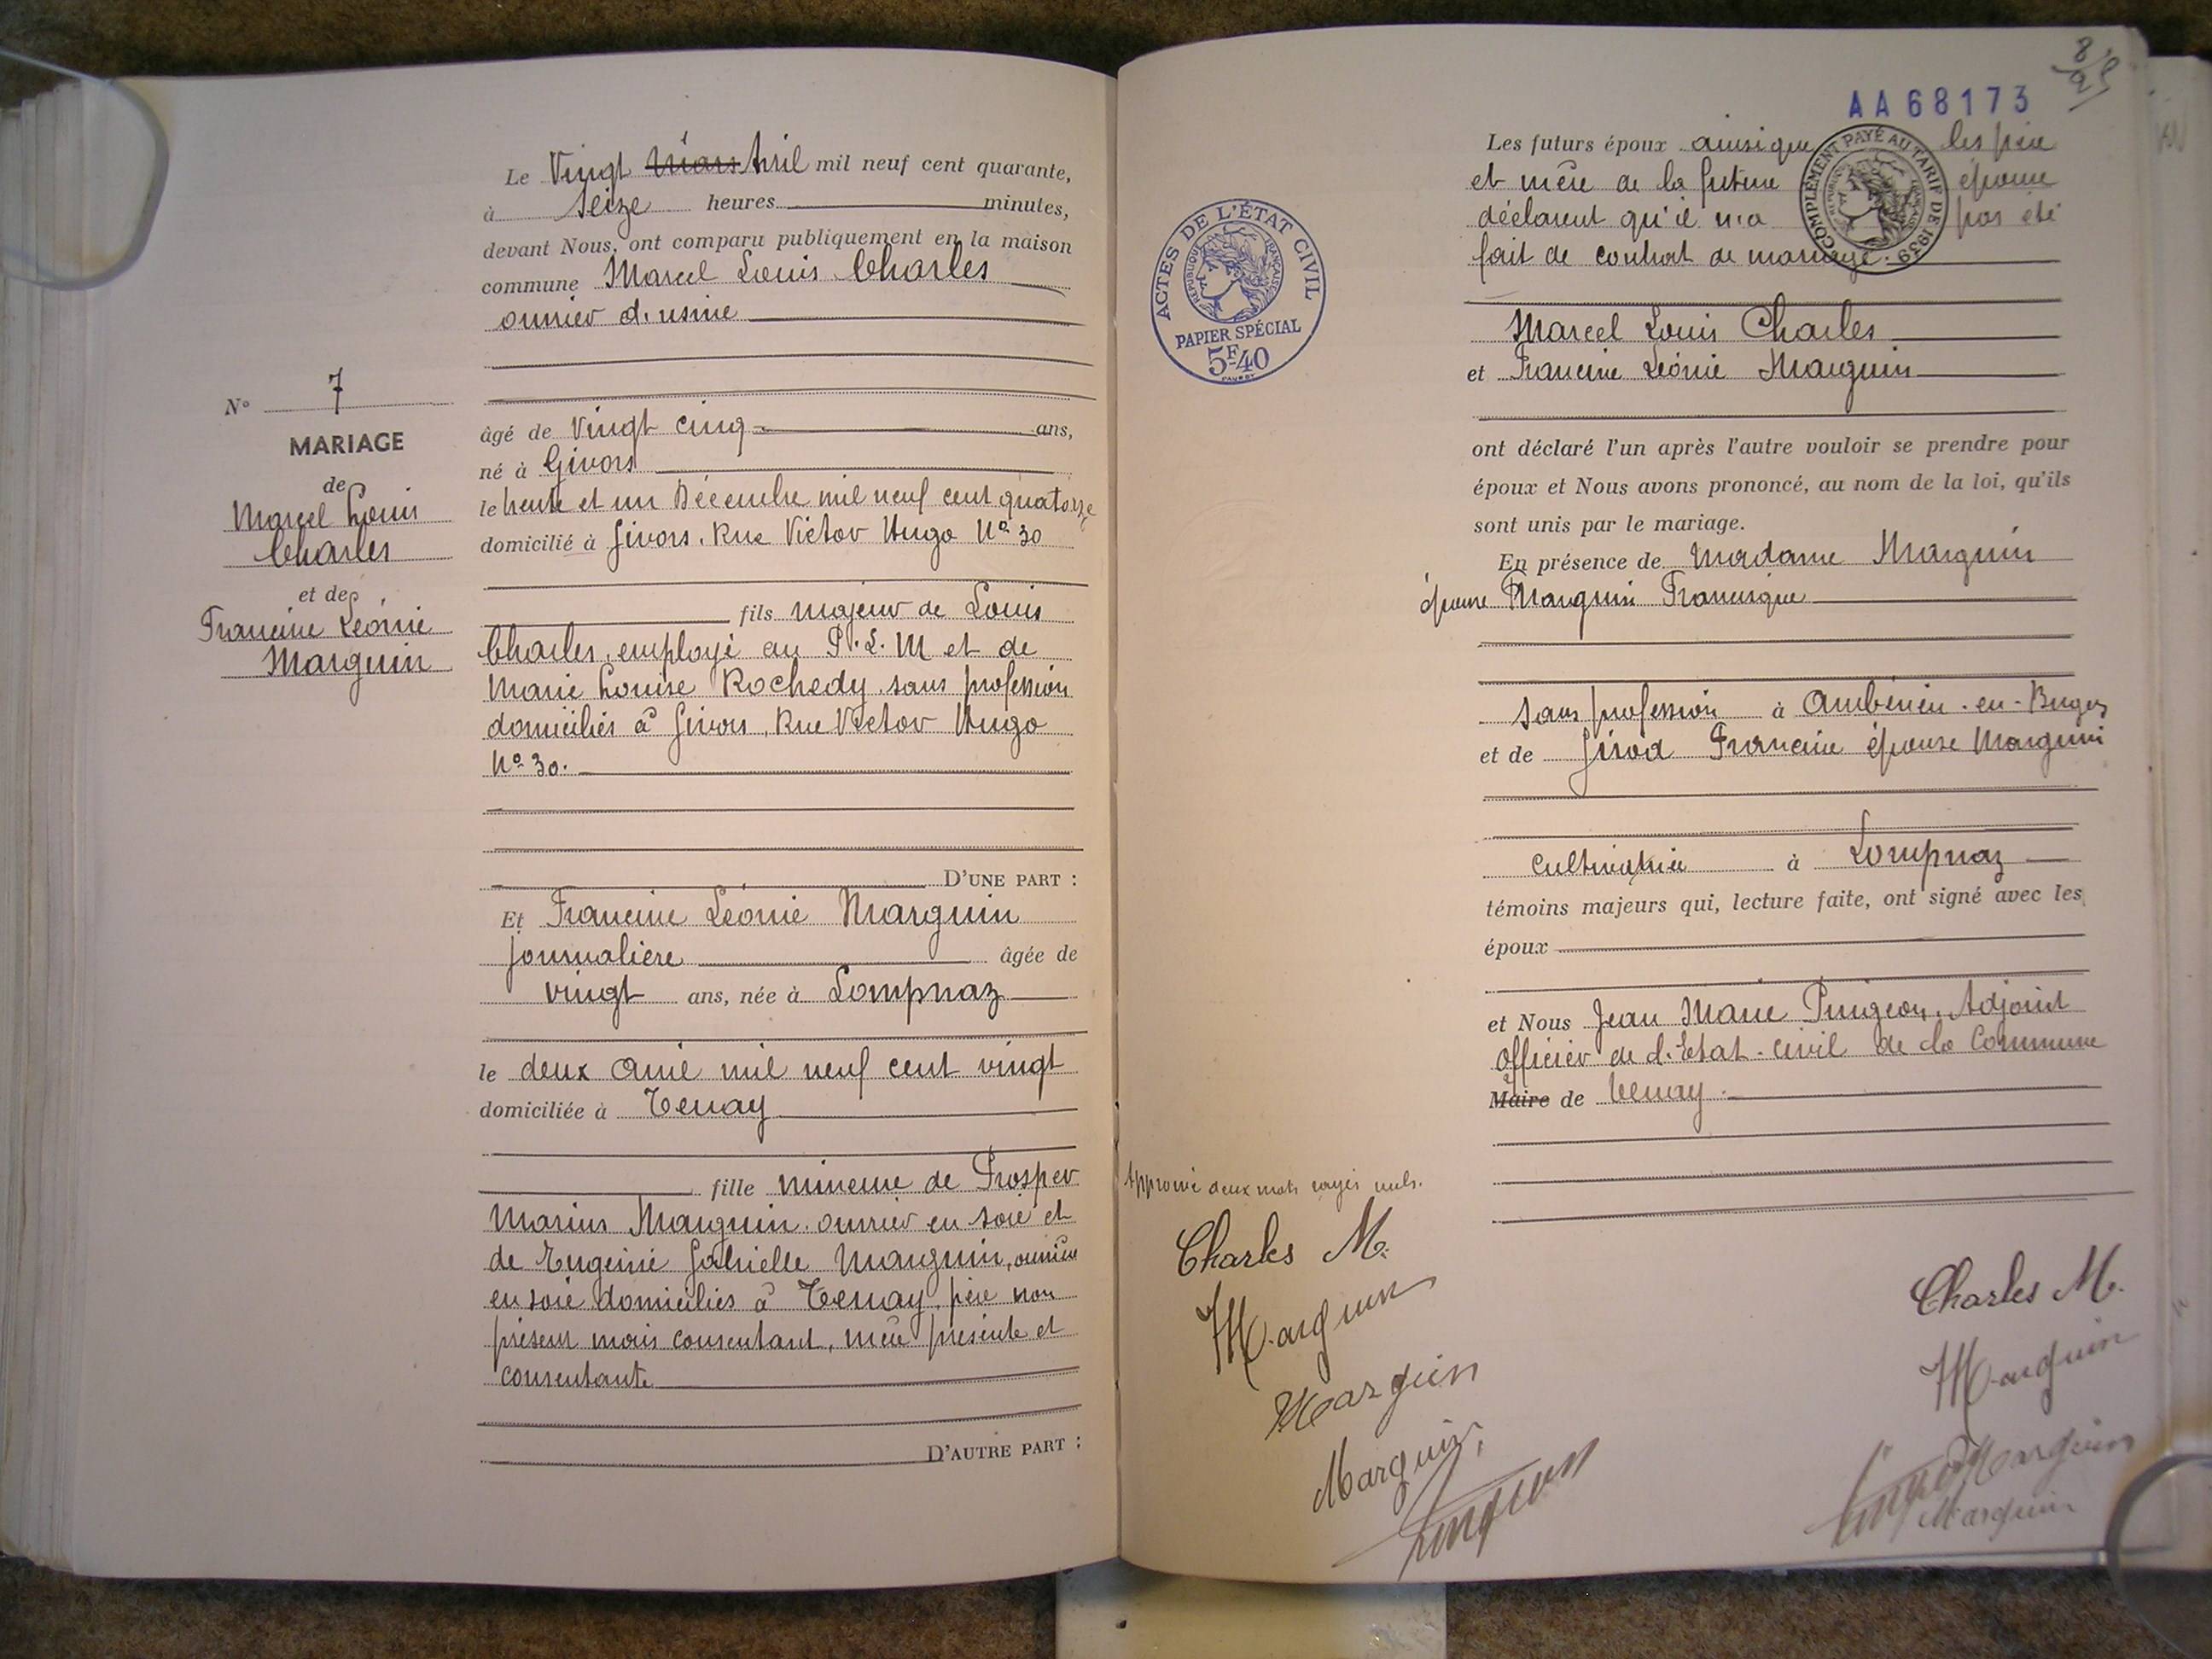 Le Vingt Mars Avril mil neuf cent quarante,
à seize heures minutes,
devant Nous, ont comparu publiquement en la maison
commune Marcel Louis Charles
ouvrier d'usine
N° 7
MARIAGE
de
Marcel Louis
Charles
et de
Francine Léonie
Marguin
âgé de vingt cinq ans,
né à Givors
le trente et un Décembre mil neuf cent quatorze
domicilié à Givors, Rue Victor Hugo N° 30
fils majeur de Louis
Charles, employé au P.L.M et de
Marie Louise Rochedy, sans profession
domiciliés à Givors, Rue Victor Hugo
N° 30.
D'UNE PART :
Et Francine Léonie Marguin
journalière âgée de
vingt ans, née à Lompnaz
le deux Avril mil neuf cent vingt
domiciliée à Tenay
fille mineure de Prosper
Marius Marguin, ouvrier en soie et
de Eugénie Gabrielle Marguin, ouvrière
en soie domiciliés à Tenay, père non
présent mais consentant, mère présente et
consentante
D'AUTRE PART :
8
AA68173
Les futurs époux ainsi que les père
et mère de la future épouse
déclarent qu'il n'a pas été
fait de contrat de mariage.
COMPLÉMENT PAYÉ AU TARIF DE 1939
ACTES DE L'ÉTAT CIVIL
RÉPUBLIQUE FRANÇAISE
PAPIER SPÉCIAL
5F40
Marcel Louis Charles
et Francine Léonie Marguin
ont déclaré l'un après l'autre vouloir se prendre pour
époux et Nous avons prononcé, au nom de la loi, qu'ils
sont unis par le mariage.
En présence de Madame Marguin
épouse Marguin Francisque
sans profession à Ambérieu-en-Bugey
et de Girod Francine épouse Marguin
cultivatrice à Lompnaz
témoins majeurs qui, lecture faite, ont signé avec les
époux
et Nous Jean Marie Pingeon, Adjoint
Officier de l'Etat-civil de la Commune
Maire de Tenay.
Approuvé deux mots rayés nuls.
Charles M.
Marguin
Marguin
Marguin
Pingeon
Charles M.
Marguin
Marguin
Marguin